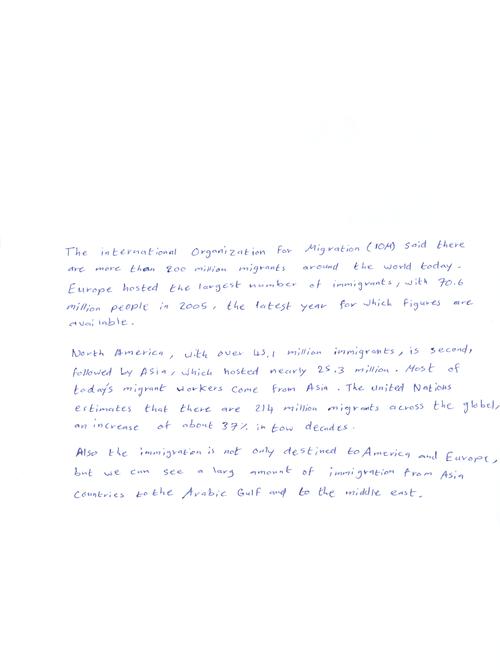 The international Organization For Migration (IOM) said there
are more than 200 million migrants around the world today.
Europe hosted the largest number of immigrants, with 70.6
million people in 2005, the latest year for which figures are
available.
North America, with over 45.1 million immigrants, is second,
followed by Asia, which hosted nearly 25.3 million. Most of
today's migrant workers come from Asia. The united Nations
estimates that there are 214 million migrants across the globe,
an increase of about 37% in tow decades.
Also the immigration is not only destined to America and Europe,
but we can see a larg amount of immigration from Asia
countries to the Arabic Gulf and to the middle east.